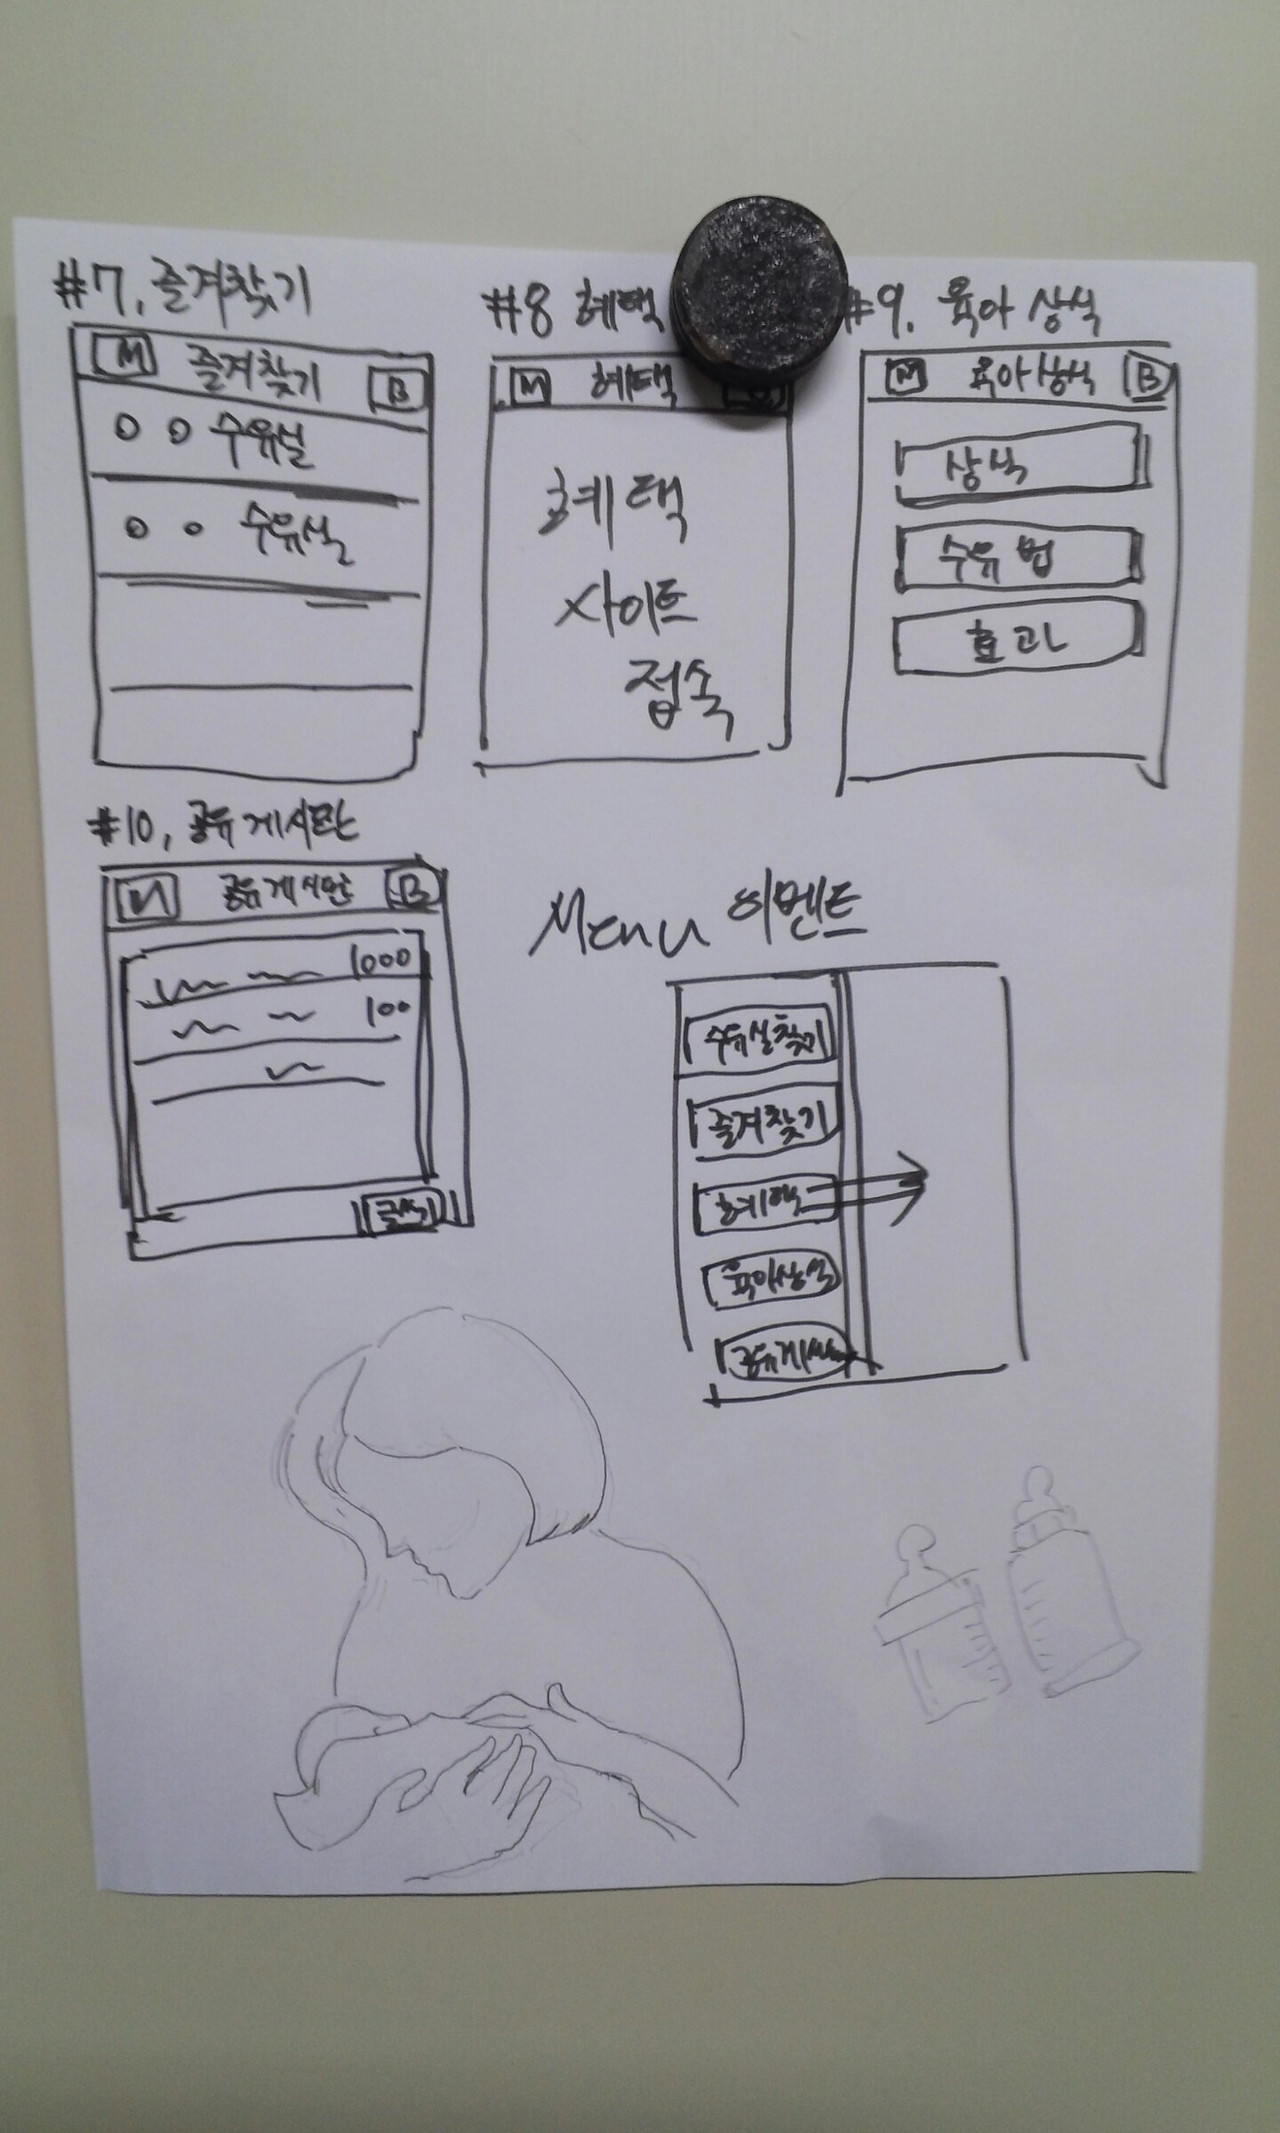 #7. 즐겨찾기
M 즐겨찾기 B
○ ○ 수유실
○ ○ 수유실
#8 혜택
M 혜택
혜택
사이트
접속
#9. 육아 상식
M 육아상식 B
상식
수유법
효과
#10. 공유게시판
M 공유게시판 B
1000
100
글쓰기
Menu 이벤트
수유실찾기
즐겨찾기
혜택
육아상식
공유게시판